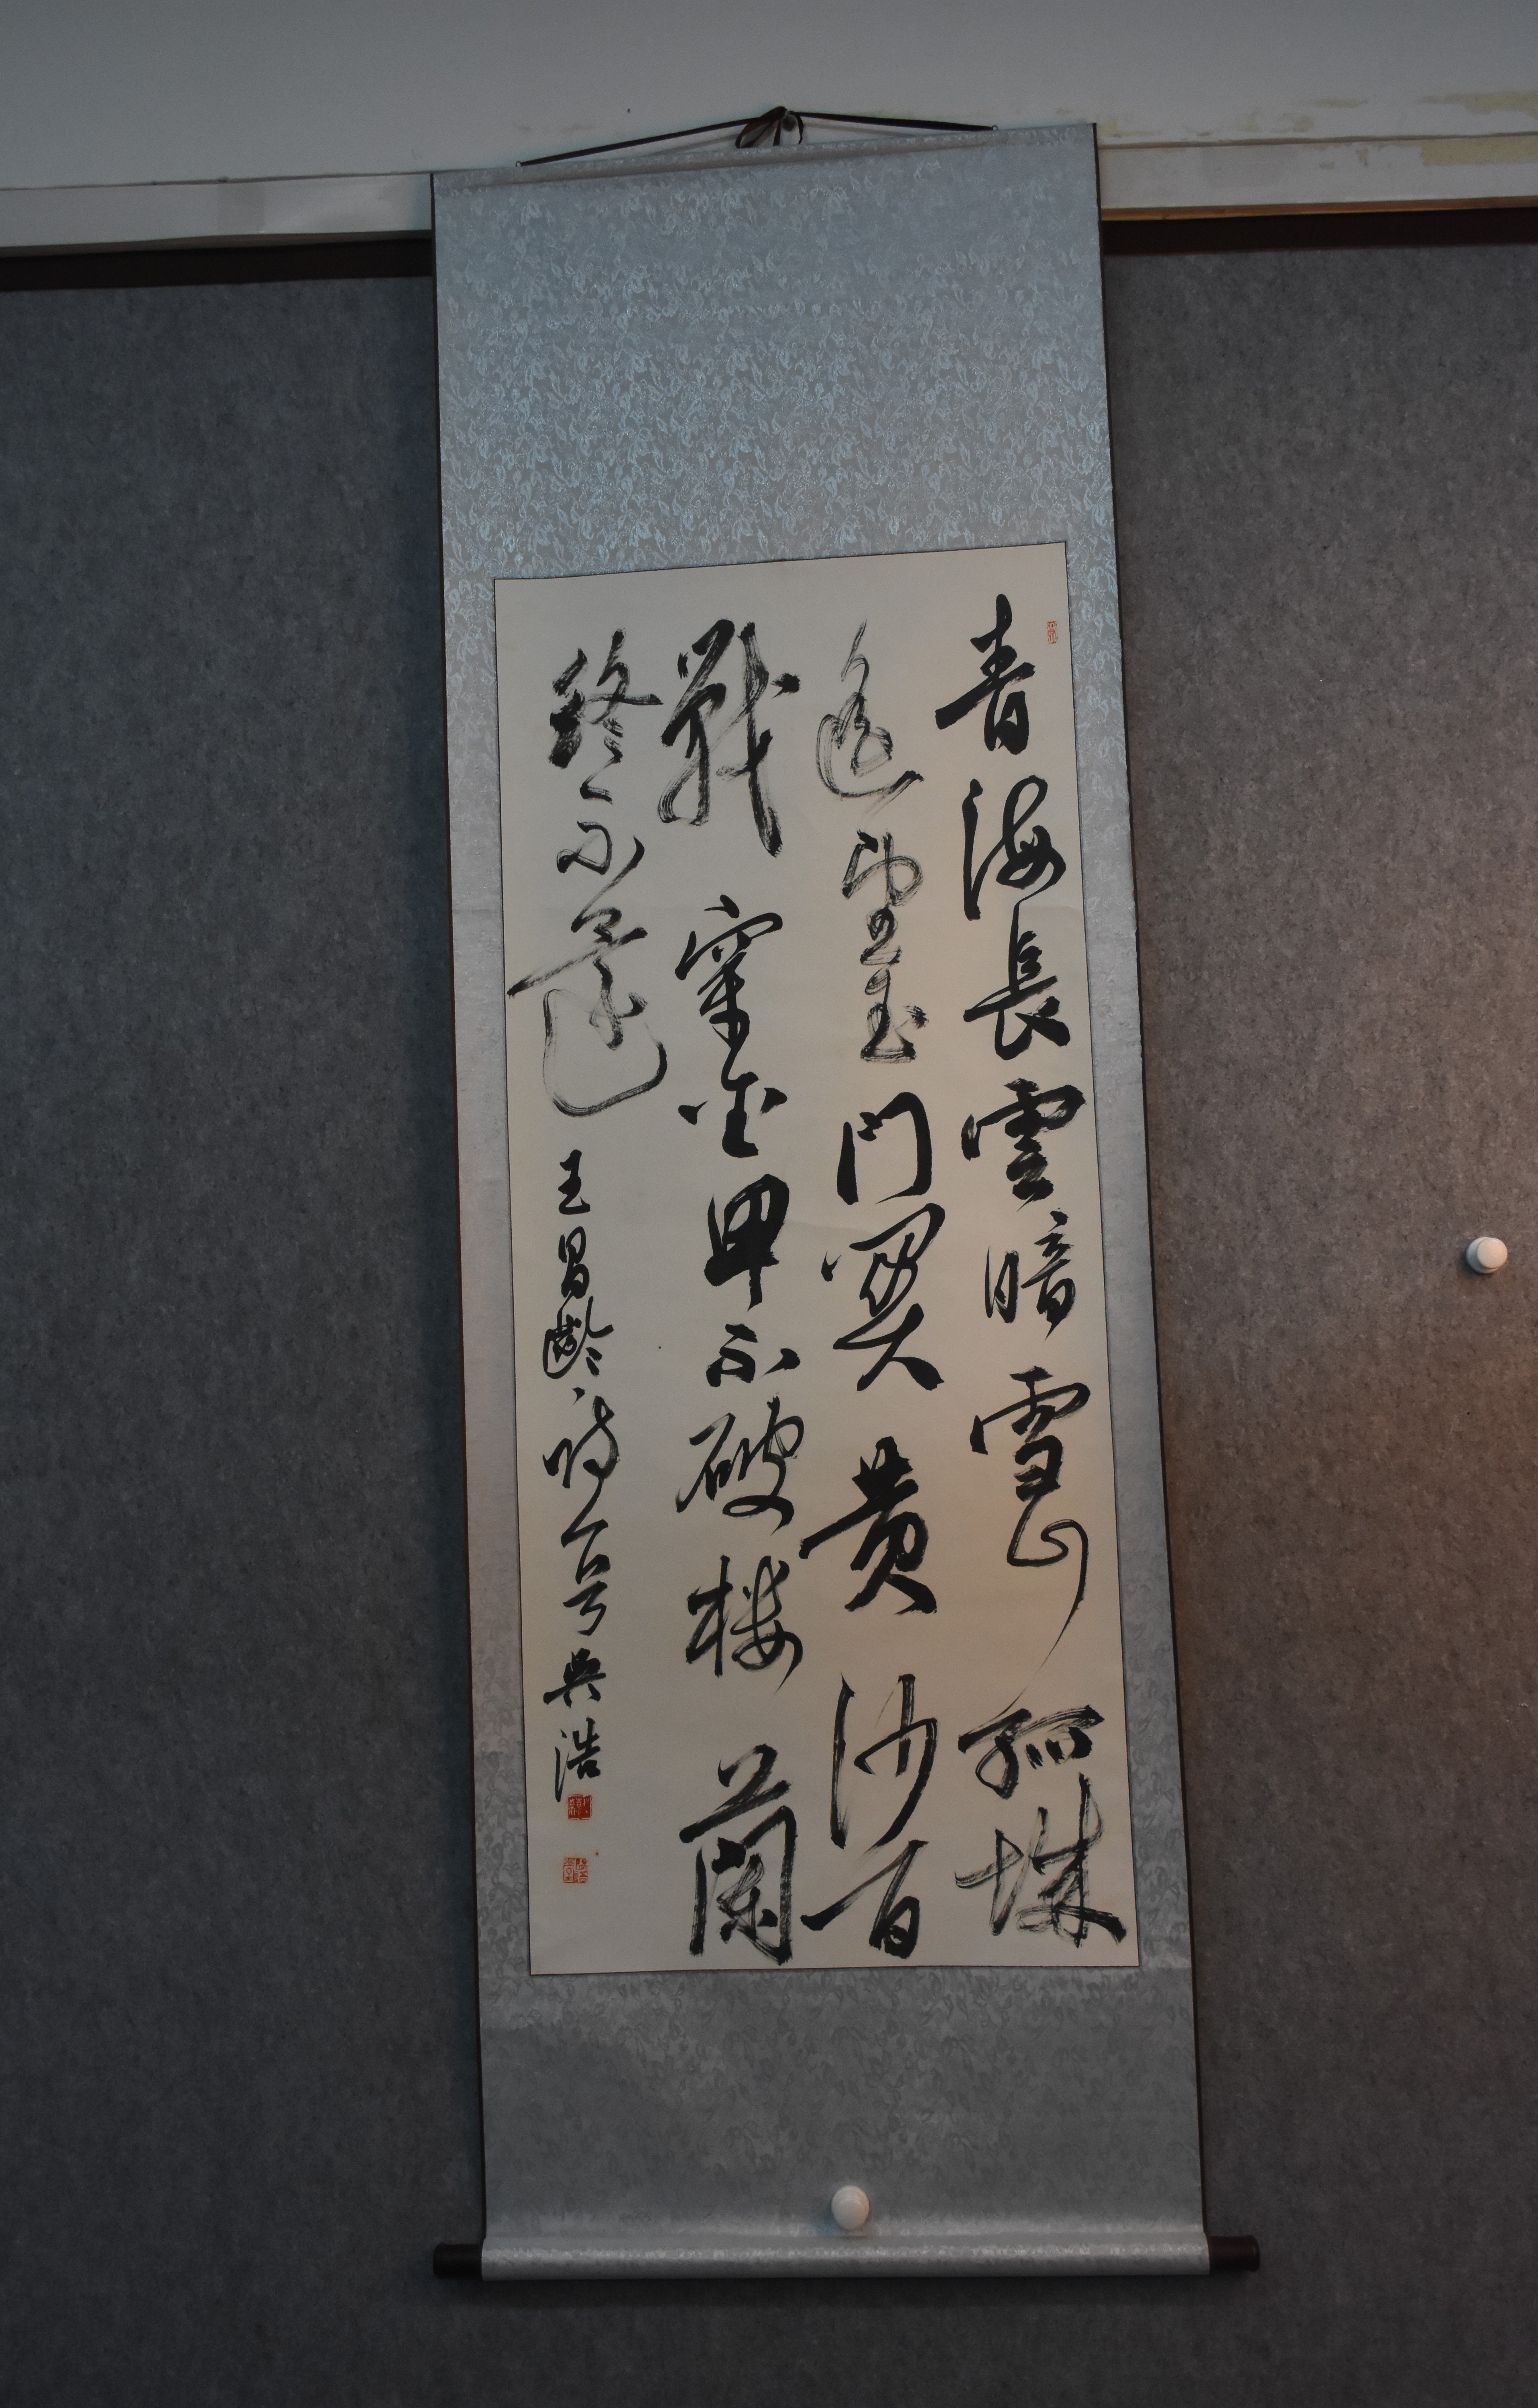 青海長雲暗雪山孤城
遙望玉門關黄沙百
戰穿金甲不破楼蘭
終不還
王昌齡詩 吳浩